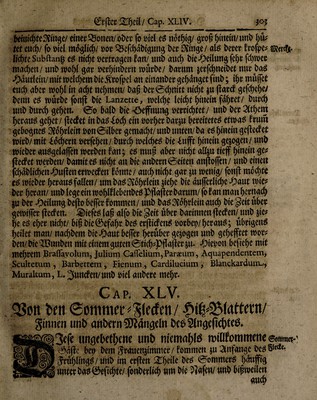 Erster Theil / Cap. XLIV. 305
beinichte Ringe / einer Bonen / oder so viel es nöthig / groß hinein / und hü-
tet euch / so viel möglich / vor Beschädigung der Ringe / als derer krospe-
lichte Substantz es nicht vertragen kan / und auch die Heilung sehr schwer
machen / und wohl gar verhindern würde / darum zerschneidet nur das
Häutlein / mit welchem die Krospel an einander gehänget sind; ihr müsset
euch aber wohl in acht nehmen / daß der Schnitt nicht zu starck geschehe /
denn es würde sonst die Lanzette / welche leicht hinein fähret / durch
und durch gehen. So bald die Oeffnung verrichtet / und der Athem
heraus gehet / stecket in das Loch ein vorher darzu bereitetes etwas krum
gebognes Röhrlein von Silber gemacht / und unten / da es hinein gesteckt
wird / mit Löchern versehen / durch welches die Lufft hinein gezogen / und
wieder ausgelassen werden kan / es muß aber nicht allzu tieff hinein ge-
stecket werden / damit es nicht an die andere Seiten anstossen / und einen
schädlichen Husten erwecken könte / auch nicht gar zu wenig / sonst möchte
es wieder heraus fallen / um das Röhrlein ziehe die äusserliche Haut wie-
der heran / und lege ein wohlklebendes Pflaster darum / so kan man hernach
zu der Heilung desto besser kommen / und das Röhrlein auch die Zeit über
gewisser stecken. Dieses laß also die Zeit über darinnen stecken / und zie-
he es eher nicht / biß die Gefahr des erstickens vorbey / heraus; übrigens
heilet man / nachdem die Haut besser herüber gezogen und gehefftet wor-
den / die Wunden mit einem guten Stich-Pflaster zu. Hievon besihe mit
mehrem Brassavolum, Julium Casselium, Paræum, Aquapendentem,
Scultetum, Barbettem, Fienum, Cardilucium, Blanckardum,
Muraltum, L. Juncken / und viel andere mehr.
Merck.
CAP. XLV.
Von den Sommer-Flecken / Hitz-Blattern /
Finnen und andern Mängeln des Angesichtes.
DJese ungebethene und niemahls willkommene
Gäste bey dem Frauenzimmer / kommen zu Anfange des
Frühlings / und im ersten Theile des Sommers häuffig
unter das Gesichte / sonderlich um die Nasen / und bißweilen
auch
Sommer-
Flecke.